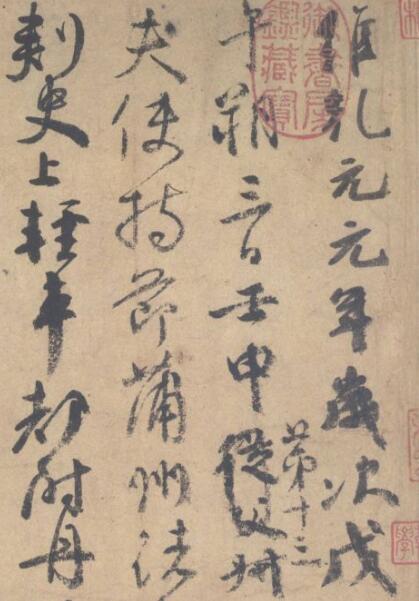 維乾元元年歲次戊
午朔三日壬申從父叔
第十三
夫使持節蒲州諸
刺史上輕車都尉丹
御書房鑑藏寶